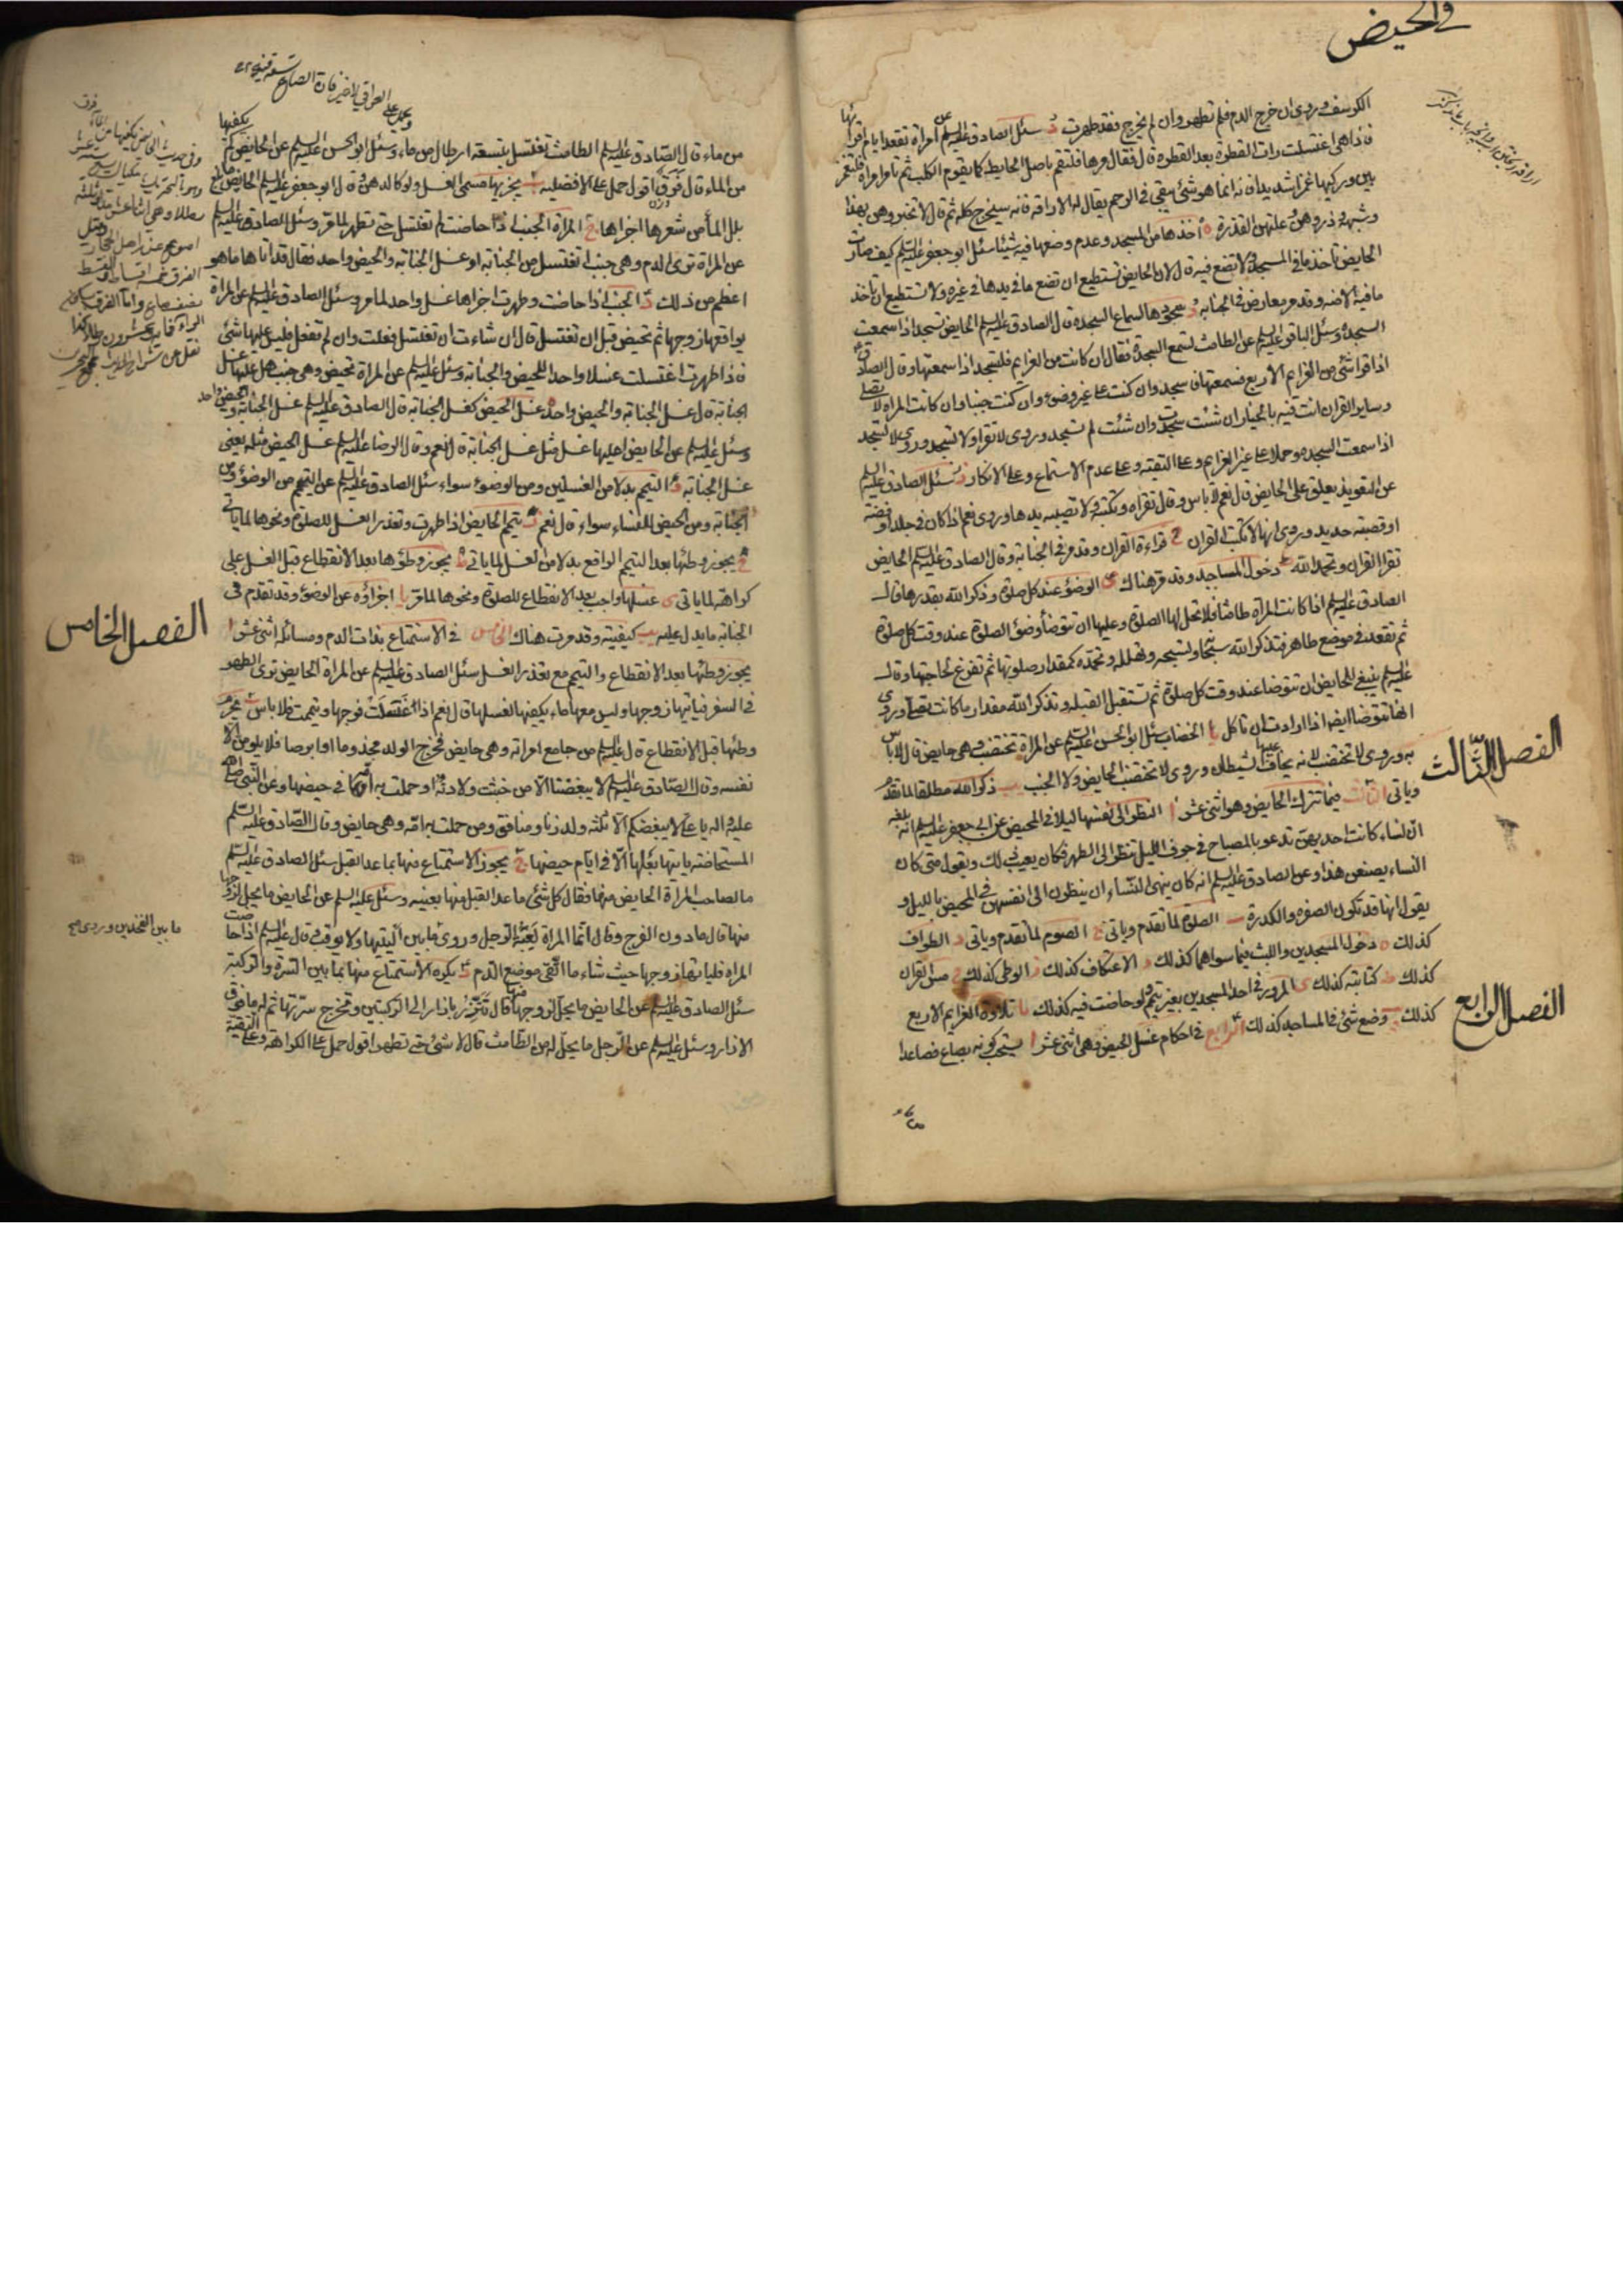 في الحيض
الكرسف وروى ان خرج الدم فلم تطهر وان لم يخرج فقد طهرت د سئل الصادق عليه السلم عن امراة تقعد ايام اقرائها
فاذا هي اغتسلت رات القطرة بعد القطرة قال فقال مرها فلتقم باصل الحايط كما يقوم الكلب ثم تامر امراة فلتغمز
بين وركيها غمزا شديدا فانه انما هو شئ يبقى في الرحم يقال له الاراقة فانه سيخرج كله ثم قال لا تخبروهن بهذا
وشبهه وذروهن وعلتهن القذرة ه اخذها من المسجد وعدم وضعها فيه شيئا سئل ابو جعفر عليه السلم كيف صارت
الحايض تأخذ ما في المسجد ولا تضع فيه قال لان الحايض تستطيع ان تضع ما في يدها في غيره ولا تستطيع ان تأخذ
ما فيه الا منه وقد مر معارض في الجنابة و سجودها لسماع السجدة قال الصادق عليه السلم الحايض تسجد اذا سمعت
السجدة وسئل الباقر عليه السلم عن الطامث تسمع السجدة فقال ان كانت من العزايم فلتسجد اذا سمعتها وقال الصادق
اذا قرا شئ من العزايم الاربع فسمعتها فاسجد وان كنت على غير وضوء وان كنت جنبا وان كانت المراة لا تصلي
وساير القران انت فيه بالخيار ان شئت سجدت وان شئت لم تسجد وروى لا تقرا ولا تسجد وروى لا تسجد
اذا سمعت السجدة وحملا على غير العزايم وعلى التقية وعلى عدم الاستماع وعلى الانكار ز سئل الصادق عليه السلم
عن التعويذ يعلق على الحايض قال نعم لا باس وقال تقراه وتكتبه ولا تصيبه يدها وروى نعم اذا كان في جلد او فضة
او قصبة حديد وروى انها لا تكتب القران ح قراءة القران وقد مر في الجنابة وقال الصادق عليه السلم الحايض
تقرا القران وتحمد الله ط دخول المساجد وقد مر هناك ى الوضوء عند كل صلوة وذكر الله بقدرها قال
الصادق عليه السلم اذا كانت المراة طامثا فلا تحل لها الصلوة وعليها ان تتوضأ وضوء الصلوة عند وقت كل صلوة
ثم تقعد في موضع طاهر فتذكر الله سبحانه وتسبحه وتهلله وتحمده كمقدار صلوتها ثم تفرغ لحاجتها وقال
عليه السلم ينبغي للحايض ان تتوضا عند وقت كل صلوة ثم تستقبل القبلة وتذكر الله مقدار ما كانت تصلي وروى
انها تتوضا ايضا اذا ارادت ان تاكل يا الخضاب سئل ابو الحسن عليه السلم عن المراة تختضب وهي حايض قال لا باس
به وروى لا تختضب لانه يخاف عليها الشيطان وروى لا تختضب الحايض ولا الجنب يب ذكر الله مطلقا لما تقدم
وياتى الثالث فيما تترك الحايض وهو اثنى عشر ا النظر الى نفسها ليلا في المحيض عن ابي جعفر عليه السلم انه بلغه
ان نساء كانت احديهن تدعو بالمصباح في جوف الليل تنظر الى الطهر فكان يعيب ذلك ويقول متى كان
النساء يصنعن هذا وعن الصادق عليه السلم انه كان ينهى النساء ان ينظرن الى انفسهن في المحيض بالليل و
يقول انها قد تكون الصفرة والكدرة ب الصلوة لما تقدم وياتى ج الصوم لما تقدم وياتى د الطواف
كذلك ه دخول المسجدين واللبث فيما سواهما كذلك و الاعتكاف كذلك ز الوطى كذلك ح مس القران
كذلك ط كتابته كذلك ى المرور في احد المسجدين بغير تيمم ولو حاضت فيه كذلك يا تلاوة العزايم الاربع
كذلك يب وضع شئ في المساجد كذلك الرابع في احكام غسل الحيض وهي اثنى عشر ا يستحب كونه بصاع فصاعدا
الفصل الثالث
الفصل الرابع
من ماء قال الصادق عليه السلم الطامث تغتسل بتسعة ارطال من ماء وسئل ابو الحسن عليه السلم عن الحايض كم يكفيها
من الماء قال فرق اقول حمل على الافضلية ب يجزيها مسمى الغسل ولو كالدهن قال ابو جعفر عليه السلم الحايض ما بلغ
بلل الماء من شعرها اجزاها ج المراة الجنب اذا حاضت لم تغتسل حتى تطهر لما مر وسئل الصادق عليه السلم
عن المراة ترى الدم وهي جنب اتغتسل من الجنابة او غسل الجنابة والحيض واحد فقال قد اتاها ما هو
اعظم من ذلك د الجنب اذا حاضت وطهرت اجزاها غسل واحد لما مر وسئل الصادق عليه السلم عن المراة
يواقعها زوجها ثم تحيض قبل ان تغتسل قال ان شاءت ان تغتسل فعلت وان لم تفعل فليس عليها شئ
فاذا طهرت اغتسلت غسلا واحدا للحيض والجنابة وسئل عليه السلم عن المراة تحيض وهي جنب هل عليها غسل
الجنابة قال غسل الجنابة والحيض واحد ه غسل الحيض كغسل الجنابة قال الصادق عليه السلم غسل الجنابة والحيض واحد
وسئل عليه السلم عن الحايض اعليها غسل مثل غسل الجنابة قال نعم وقال الرضا عليه السلم غسل الحيض مثله يعني
غسل الجنابة و التيمم بدلا من الغسلين ومن الوضوء سواء سئل الصادق عليه السلم عن التيمم من الوضوء ومن
الجنابة ومن الحيض للنساء سواء قال نعم ز تيمم الحايض اذا طهرت وتعذر الغسل للصلوة ونحوها لما ياتى
ح يجوز وطئها بعد التيمم الواقع بدلا من الغسل لما ياتى ط يجوز وطؤها بعد الانقطاع قبل الغسل على
كراهة لما ياتى ى غسلها واجب بعد الانقطاع للصلوة ونحوها لما مر يا اجزاؤه عن الوضوء وقد تقدم في
الجنابة ما يدل عليه يب كيفيته وقد مرت هناك الخامس في الاستمتاع بذات الدم ومسائله اثنى عشر ا
يجوز وطئها بعد الانقطاع والتيمم مع تعذر الغسل سئل الصادق عليه السلم عن المراة الحايض ترى الطهر
في السفر فياتيها زوجها وليس معها ماء يكفيها لغسلها قال نعم اذا غسلت فرجها وتيممت فلا باس ب يحرم
وطئها قبل الانقطاع قال عليه السلم من جامع امراته وهي حايض فخرج الولد مجذوما او ابرص فلا يلومن الا
نفسه وقال الصادق عليه السلم لا يبغضنا الا من خبثت ولادته او حملت به امه في حيضها وعن النبي صلى الله
عليه واله يا علي لا يبغضكم الا ثلثة ولد زنا ومنافق ومن حملت به امه وهي حايض وقال الصادق عليه السلم
المستحاضة ياتيها بعلها الا في ايام حيضها ج يجوز الاستمتاع منها بما عدا القبل سئل الصادق عليه السلم
ما لصاحب المراة الحايض منها فقال كل شئ ما عدا القبل منها بعينه وسئل عليه السلم عن الحايض ما يحل لزوجها
منها قال ما دون الفرج وقال انما المراة لعبة الرجل وروى ما بين اليتيها ولا يوقب قال عليه السلم اذا حاضت
المراة فلياتها زوجها حيث شاء ما اتقى موضع الدم د يكره الاستمتاع منها بما بين السرة والركبة
سئل الصادق عليه السلم عن الحايض ما يحل لزوجها منها قال تتزر بازار الى الركبتين وتخرج سرتها ثم له ما فوق
الازار وسئل عليه السلم عن الرجل ما يحل له من الطامث قال لا شئ حتى تطهر اقول حمل على الكراهة وعلى التقية
الفصل الخامس
ما بين الفخذين وروى